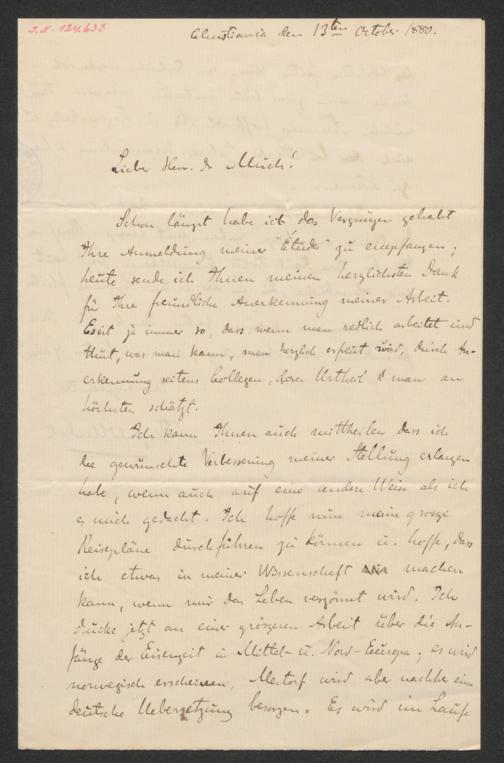 I.N. 124.632
Christiania den 13ten October 1880.
Lieber Herr Dr Much!
Schon längst habe ich das Vergnügen gehabt
Ihre Anmeldung meiner "Études" zu empfangen;
heute sende ich Ihnen meinen herzlichsten Dank
für Ihre freundliche Anerkennung meiner Arbeit.
Es ist ja immer so, dass wenn man redlich arbeitet und
thut, was man kann, man herzlich erfreut wird, durch An-
erkennung seitens Collegen, deren Urtheil man am
höchsten schätzt.
Ich kann Ihnen auch mittheilen dass ich
die gewünschte Verbesserung meiner Stellung erlangen
habe, wenn auch auf eine andere Weise als ich
es mich gedacht. Ich hoffe nun meine grosse
Reisepläne durchführen zu können u. hoffe, dass
ich etwas in meiner Wissenschaft machen
kann, wenn mir das Leben vergönnt wird. Ich
drucke jetzt an einer grösseren Arbeit über die An-
fänge der Eisenzeit in Mittel- u. Nord-Europa; es wird
norwegisch erscheinen, Mestorf wird aber nachher eine
deutsche Uebersetzung besorgen. Es wird im Laufe